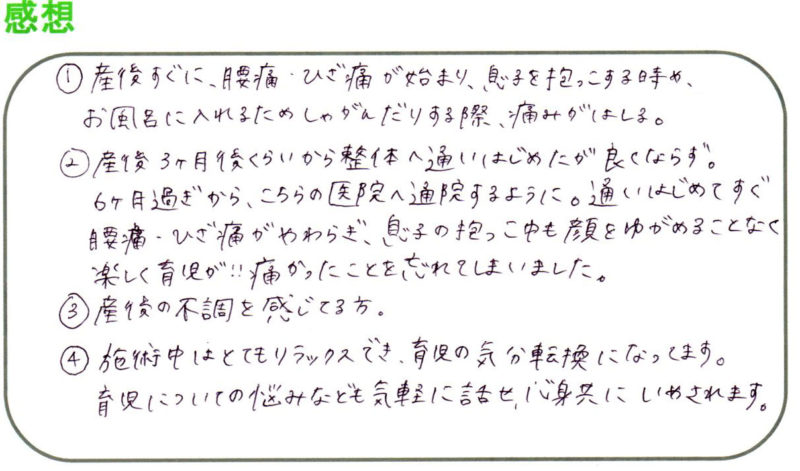 感想
① 産後すぐに、腰痛・ひざ痛が始まり、息子を抱っこする時や、
お風呂に入れるためしゃがんだりする際、痛みがはしる。
② 産後3ヶ月後くらいから整体へ通いはじめたが良くならず。
6ヶ月過ぎから、こちらの医院へ通院するように。通いはじめてすぐ
腰痛・ひざ痛がやわらぎ、息子の抱っこ中も顔をゆがめることなく
楽しく育児が!!痛かったことを忘れてしまいました。
③ 産後の不調を感じてる方。
④ 施術中はとてもリラックスでき、育児の気分転換になってます。
育児についての悩みなども気軽に話せ、心身共にいやされます。